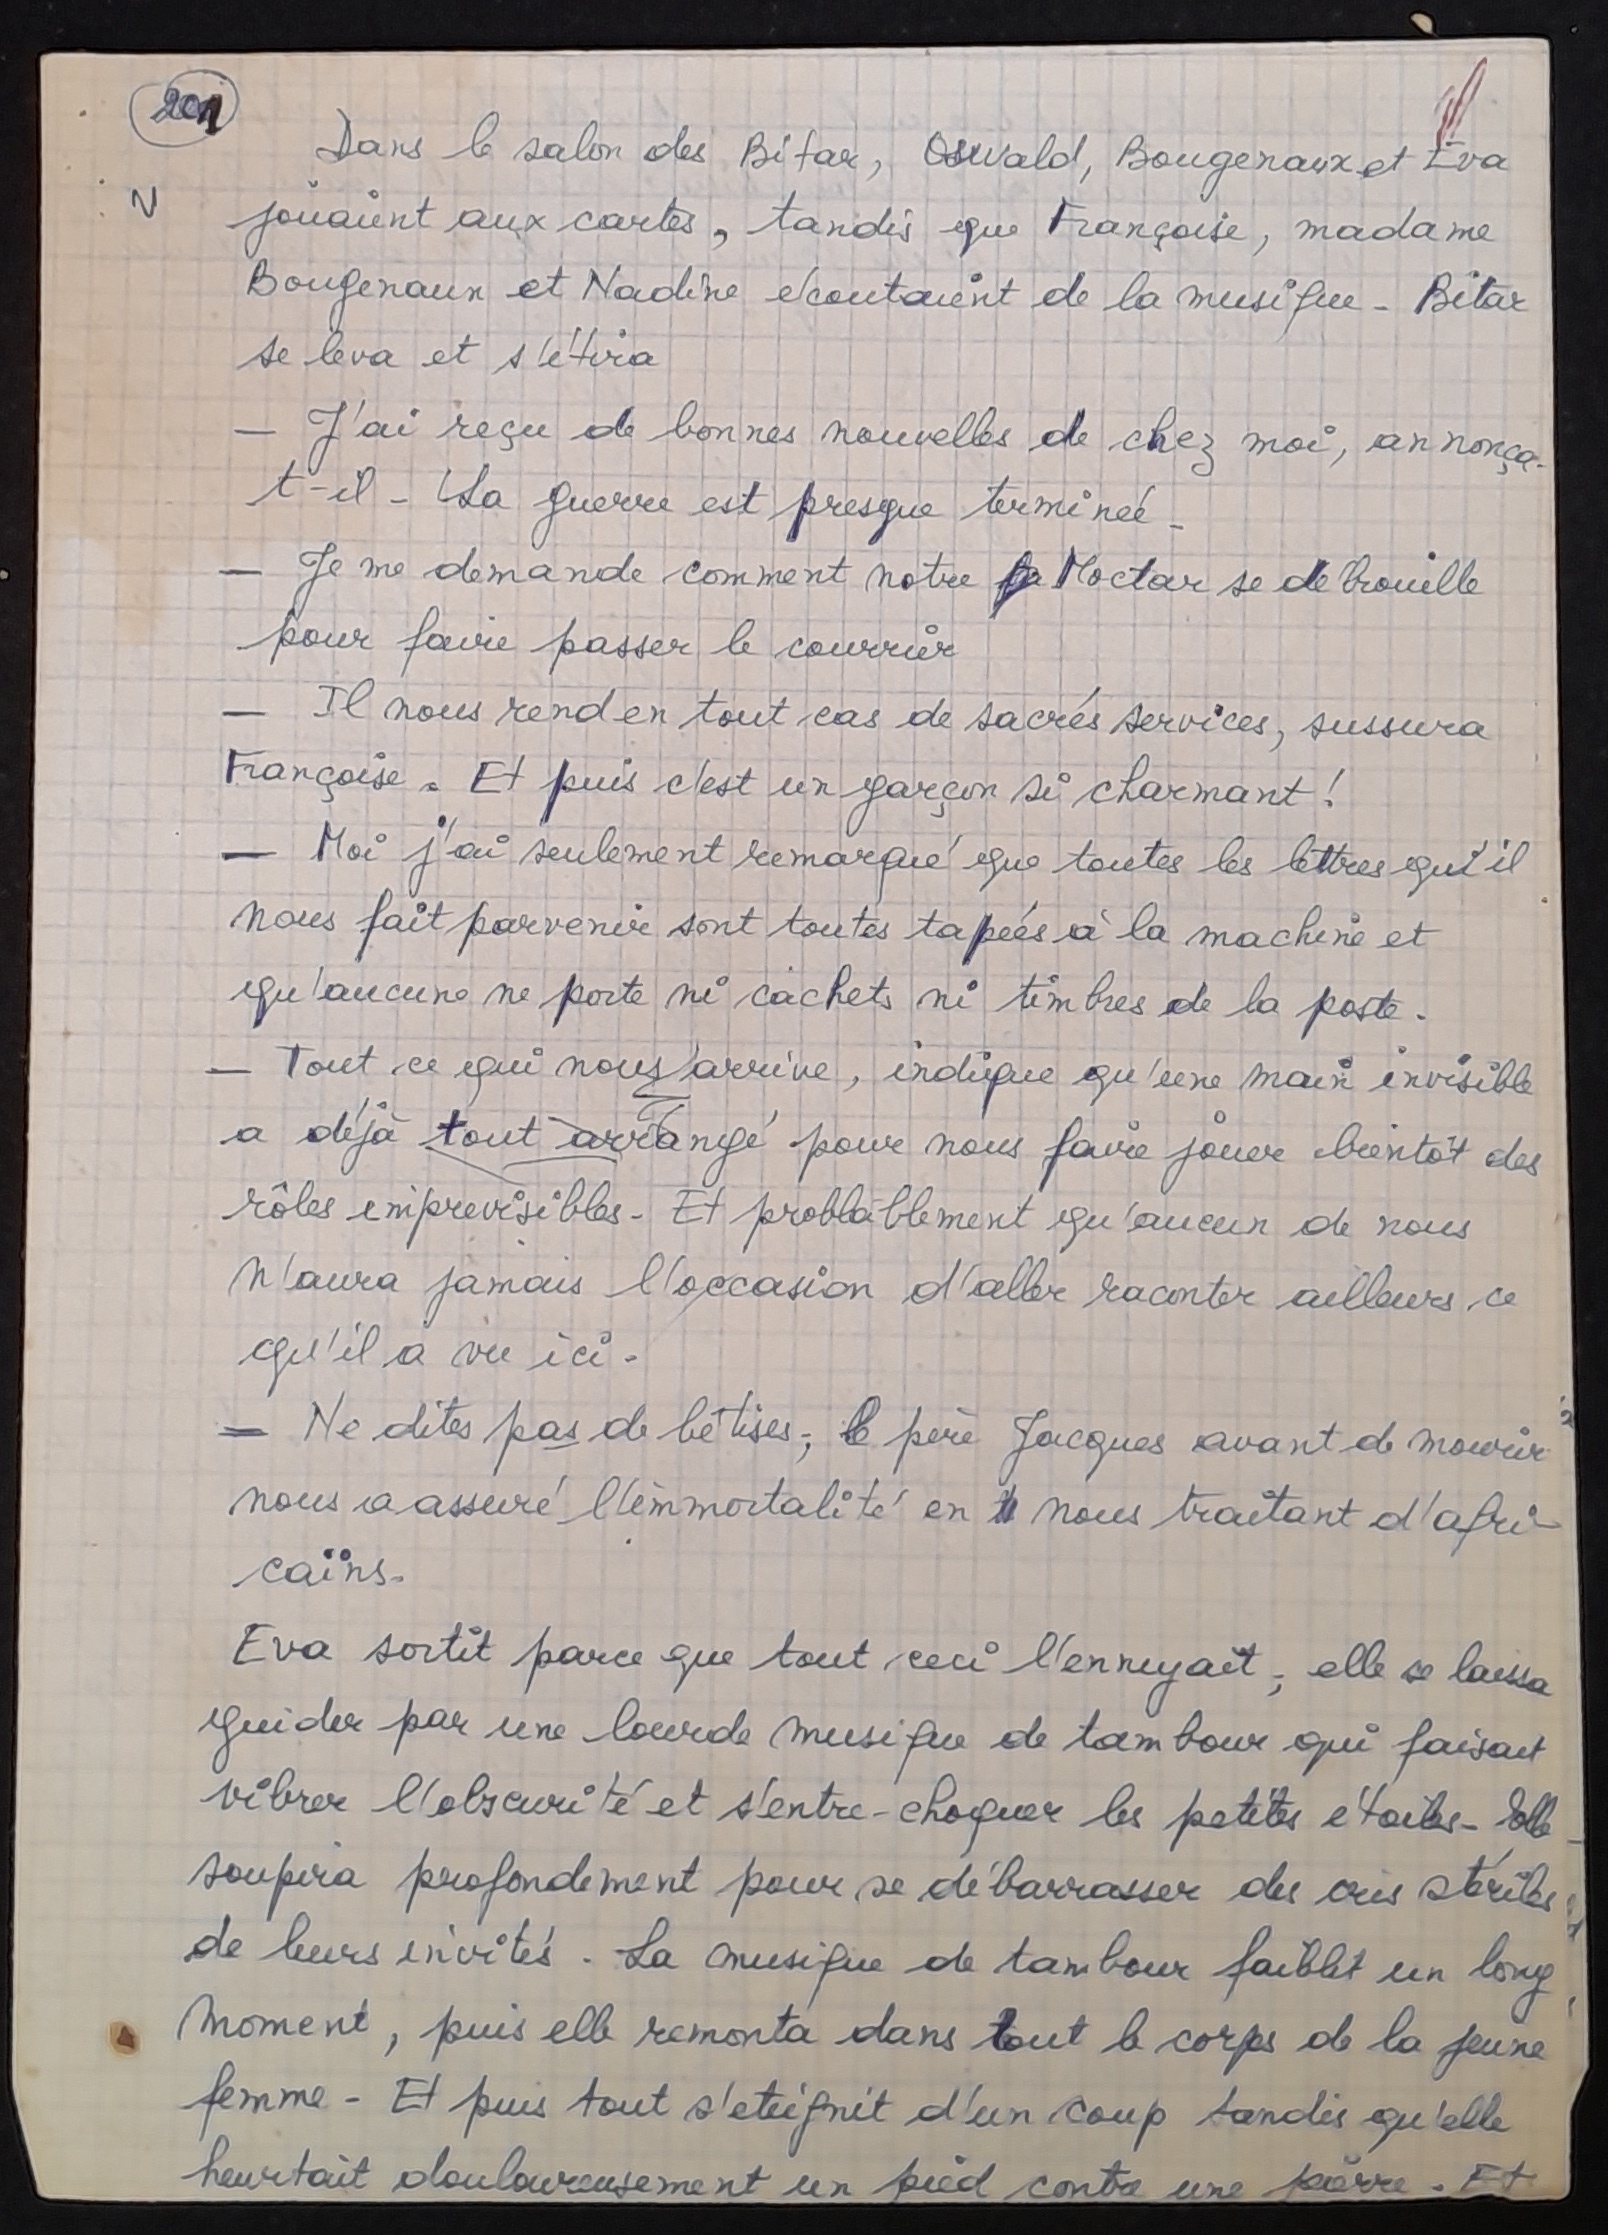 201
Dans le salon des Bitar, Oswald, Bougenaux et Eva
N
jouaient aux cartes, tandis que Françoise, madame
Bougenaux et Nadine écoutaient de la musique - Bitar
se leva et s'étira
— J'ai reçu de bonnes nouvelles de chez moi, annonça-
t-il - La guerre est presque terminée -
— Je me demande comment notre Moctar se débrouille
pour faire passer le courrier
— Il nous rend en tout cas de sacrés services, sussura
Françoise. Et puis c'est un garçon si charmant !
— Moi j'ai seulement remarqué que toutes les lettres qu'il
nous fait parvenir sont toutes tapées à la machine et
qu'aucune ne porte ni cachets ni timbres de la poste.
— Tout ce qui nous arrive, indique qu'une main invisible
a déjà tout arrangé pour nous faire jouer bientôt des
rôles imprevisibles - Et probbablement qu'aucun de nous
n'aura jamais l'occasion d'aller raconter ailleurs ce
qu'il a vu ici -
— Ne dites pas de bêtises ; le père Jacques avant de mourir
nous a assuré l'immortalité en nous traitant d'afri-
cains.
Eva sortit parce que tout ceci l'ennuyait ; elle se laissa
guider par une lourde musique de tambour qui faisait
vibrer l'obscurité et s'entre-choquer les petites étoiles - Elle
soupira profondement pour se débarrasser des cris stériles
de leurs invités. La musique de tambour faiblit un long
moment, puis elle remonta dans tout le corps de la jeune
femme - Et puis tout s'eteignit d'un coup tandis qu'elle
heurtait douloureusement un pied contre une pierre. Et